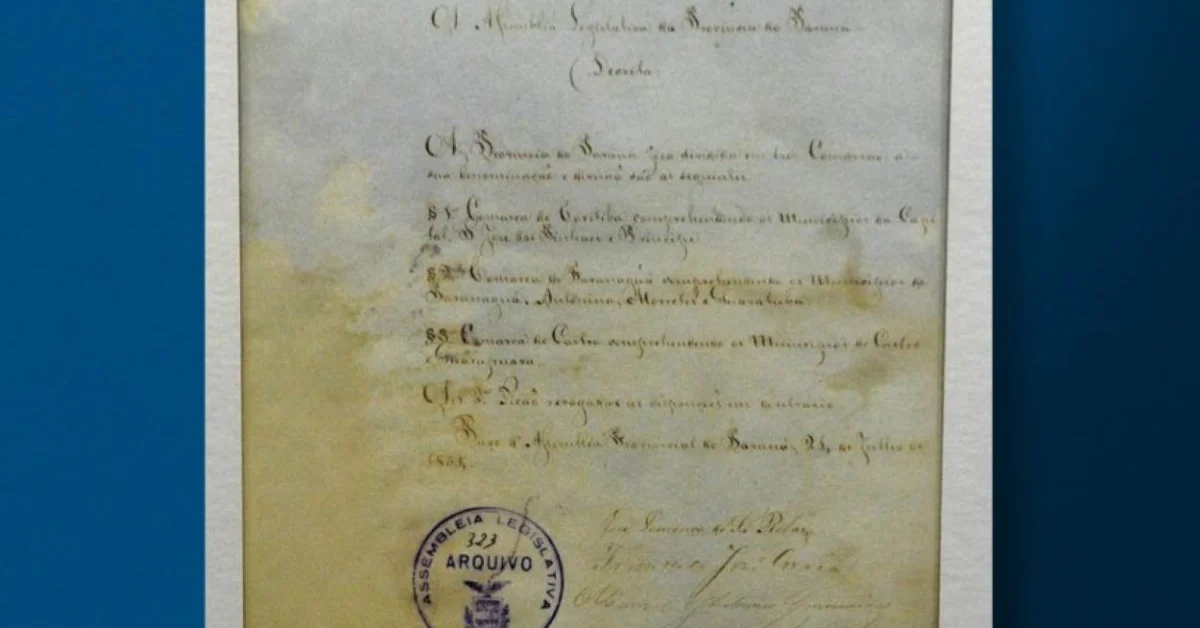 A Assembléa Legislativa da Provincia do Paraná
Decreta:
A Provincia do Paraná fica dividida em tres Comarcas, a
sua denominação e divisão são as seguintes
§ 1º Comarca de Coritiba comprehendendo os Municipios da Capi
tal, S. José dos Pinhaes e Principe
§ 2º Comarca de Paranaguá comprehendendo os Municipios de
Paranaguá, Antonina, Morretes e Guaratuba.
§ 3º Comarca de Castro comprehendendo os Municipios de Castro
e Guarapuava
Art. 2º Ficão revogadas as disposições em contrario
Paço d' Assembléa Provincial do Paraná, 24 de Julho de
1854.
ASSEMBLEIA LEGISLATIVA
323
ARQUIVO
José
Francisco José Correia